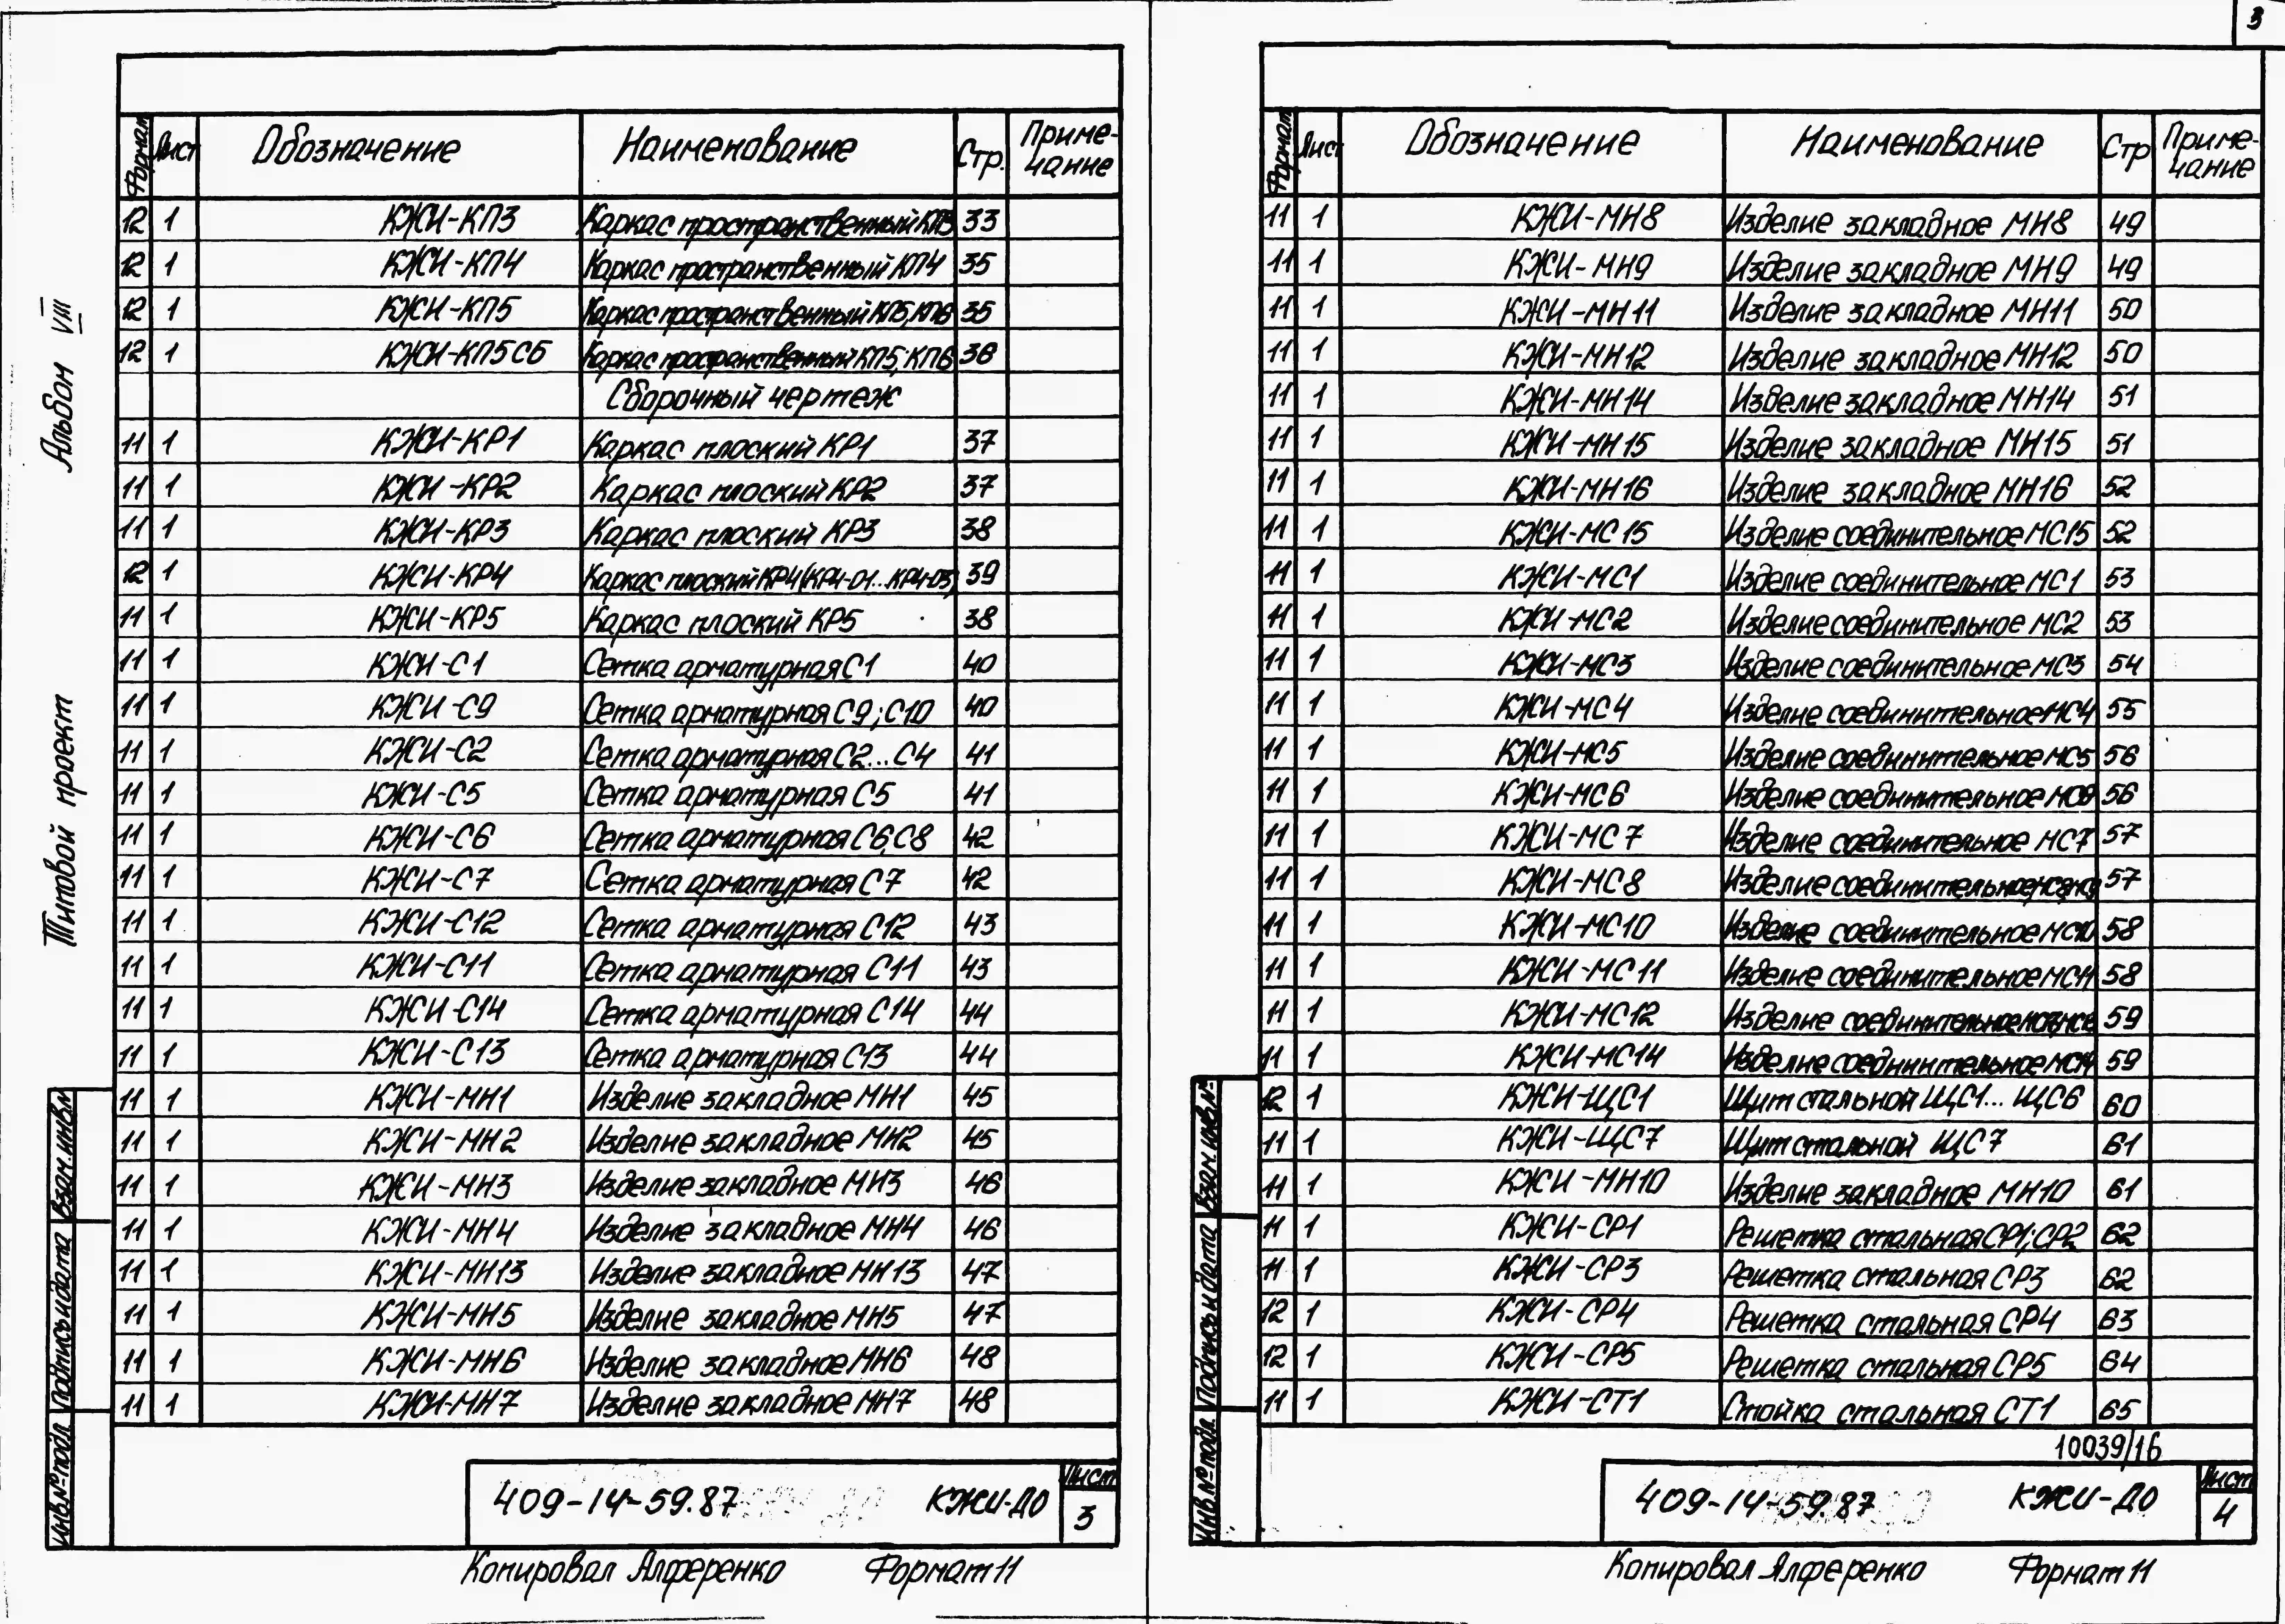 3
Альбом VIII
Типовой проект
Формат Лист Обозначение Наименование Стр. Приме-чание
12 1 КЖИ-КП3 Каркас пространственный КП3 33
12 1 КЖИ-КП4 Каркас пространственный КП4 35
12 1 КЖИ-КП5 Каркас пространственный КП5, КП6 35
12 1 КЖИ-КП5СБ Каркас пространственный КП5; КП6 36
Сборочный чертеж
11 1 КЖИ-КР1 Каркас плоский КР1 37
11 1 КЖИ-КР2 Каркас плоский КР2 37
11 1 КЖИ-КР3 Каркас плоский КР3 38
12 1 КЖИ-КР4 Каркас плоский КР4 (КР4-01...КР4-03) 39
11 1 КЖИ-КР5 Каркас плоский КР5 38
11 1 КЖИ-С1 Сетка арматурная С1 40
11 1 КЖИ-С9 Сетка арматурная С9; С10 40
11 1 КЖИ-С2 Сетка арматурная С2...С4 41
11 1 КЖИ-С5 Сетка арматурная С5 41
11 1 КЖИ-С6 Сетка арматурная С6, С8 42
11 1 КЖИ-С7 Сетка арматурная С7 42
11 1 КЖИ-С12 Сетка арматурная С12 43
11 1 КЖИ-С11 Сетка арматурная С11 43
11 1 КЖИ-С14 Сетка арматурная С14 44
11 1 КЖИ-С13 Сетка арматурная С13 44
11 1 КЖИ-МН1 Изделие закладное МН1 45
11 1 КЖИ-МН2 Изделие закладное МН2 45
11 1 КЖИ-МН3 Изделие закладное МН3 46
11 1 КЖИ-МН4 Изделие закладное МН4 46
11 1 КЖИ-МН13 Изделие закладное МН13 47
11 1 КЖИ-МН5 Изделие закладное МН5 47
11 1 КЖИ-МН6 Изделие закладное МН6 48
11 1 КЖИ-МН7 Изделие закладное МН7 48
Взам.инв.№
Подпись и дата
Инв.№ подл.
409-14-59.87 КЖИ-ДО Лист 3
Копировал Алференко Формат 11
Формат Лист Обозначение Наименование Стр Приме-чание
11 1 КЖИ-МН8 Изделие закладное МН8 49
11 1 КЖИ-МН9 Изделие закладное МН9 49
11 1 КЖИ-МН11 Изделие закладное МН11 50
11 1 КЖИ-МН12 Изделие закладное МН12 50
11 1 КЖИ-МН14 Изделие закладное МН14 51
11 1 КЖИ-МН15 Изделие закладное МН15 51
11 1 КЖИ-МН16 Изделие закладное МН16 52
11 1 КЖИ-МС15 Изделие соединительное МС15 52
11 1 КЖИ-МС1 Изделие соединительное МС1 53
11 1 КЖИ-МС2 Изделие соединительное МС2 53
11 1 КЖИ-МС3 Изделие соединительное МС3 54
11 1 КЖИ-МС4 Изделие соединительное МС4 55
11 1 КЖИ-МС5 Изделие соединительное МС5 56
11 1 КЖИ-МС6 Изделие соединительное МС6 56
11 1 КЖИ-МС7 Изделие соединительное МС7 57
11 1 КЖИ-МС8 Изделие соединительное 57
11 1 КЖИ-МС10 Изделие соединительное МС10 58
11 1 КЖИ-МС11 Изделие соединительное МС11 58
11 1 КЖИ-МС12 Изделие соединительное 59
11 1 КЖИ-МС14 Изделие соединительное МС14 59
12 1 КЖИ-ЩС1 Щит стальной ЩС1...ЩС6 60
11 1 КЖИ-ЩС7 Щит стальной ЩС7 61
11 1 КЖИ-МН10 Изделие закладное МН10 61
11 1 КЖИ-СР1 Решетка стальная СР1; СР2 62
11 1 КЖИ-СР3 Решетка стальная СР3 62
12 1 КЖИ-СР4 Решетка стальная СР4 63
12 1 КЖИ-СР5 Решетка стальная СР5 64
11 1 КЖИ-СТ1 Стойка стальная СТ1 65
10039/16
Взам.инв.№
Подпись и дата
Инв.№ подл.
409-14-59.87 КЖИ-ДО Лист 4
Копировал Алференко Формат 11